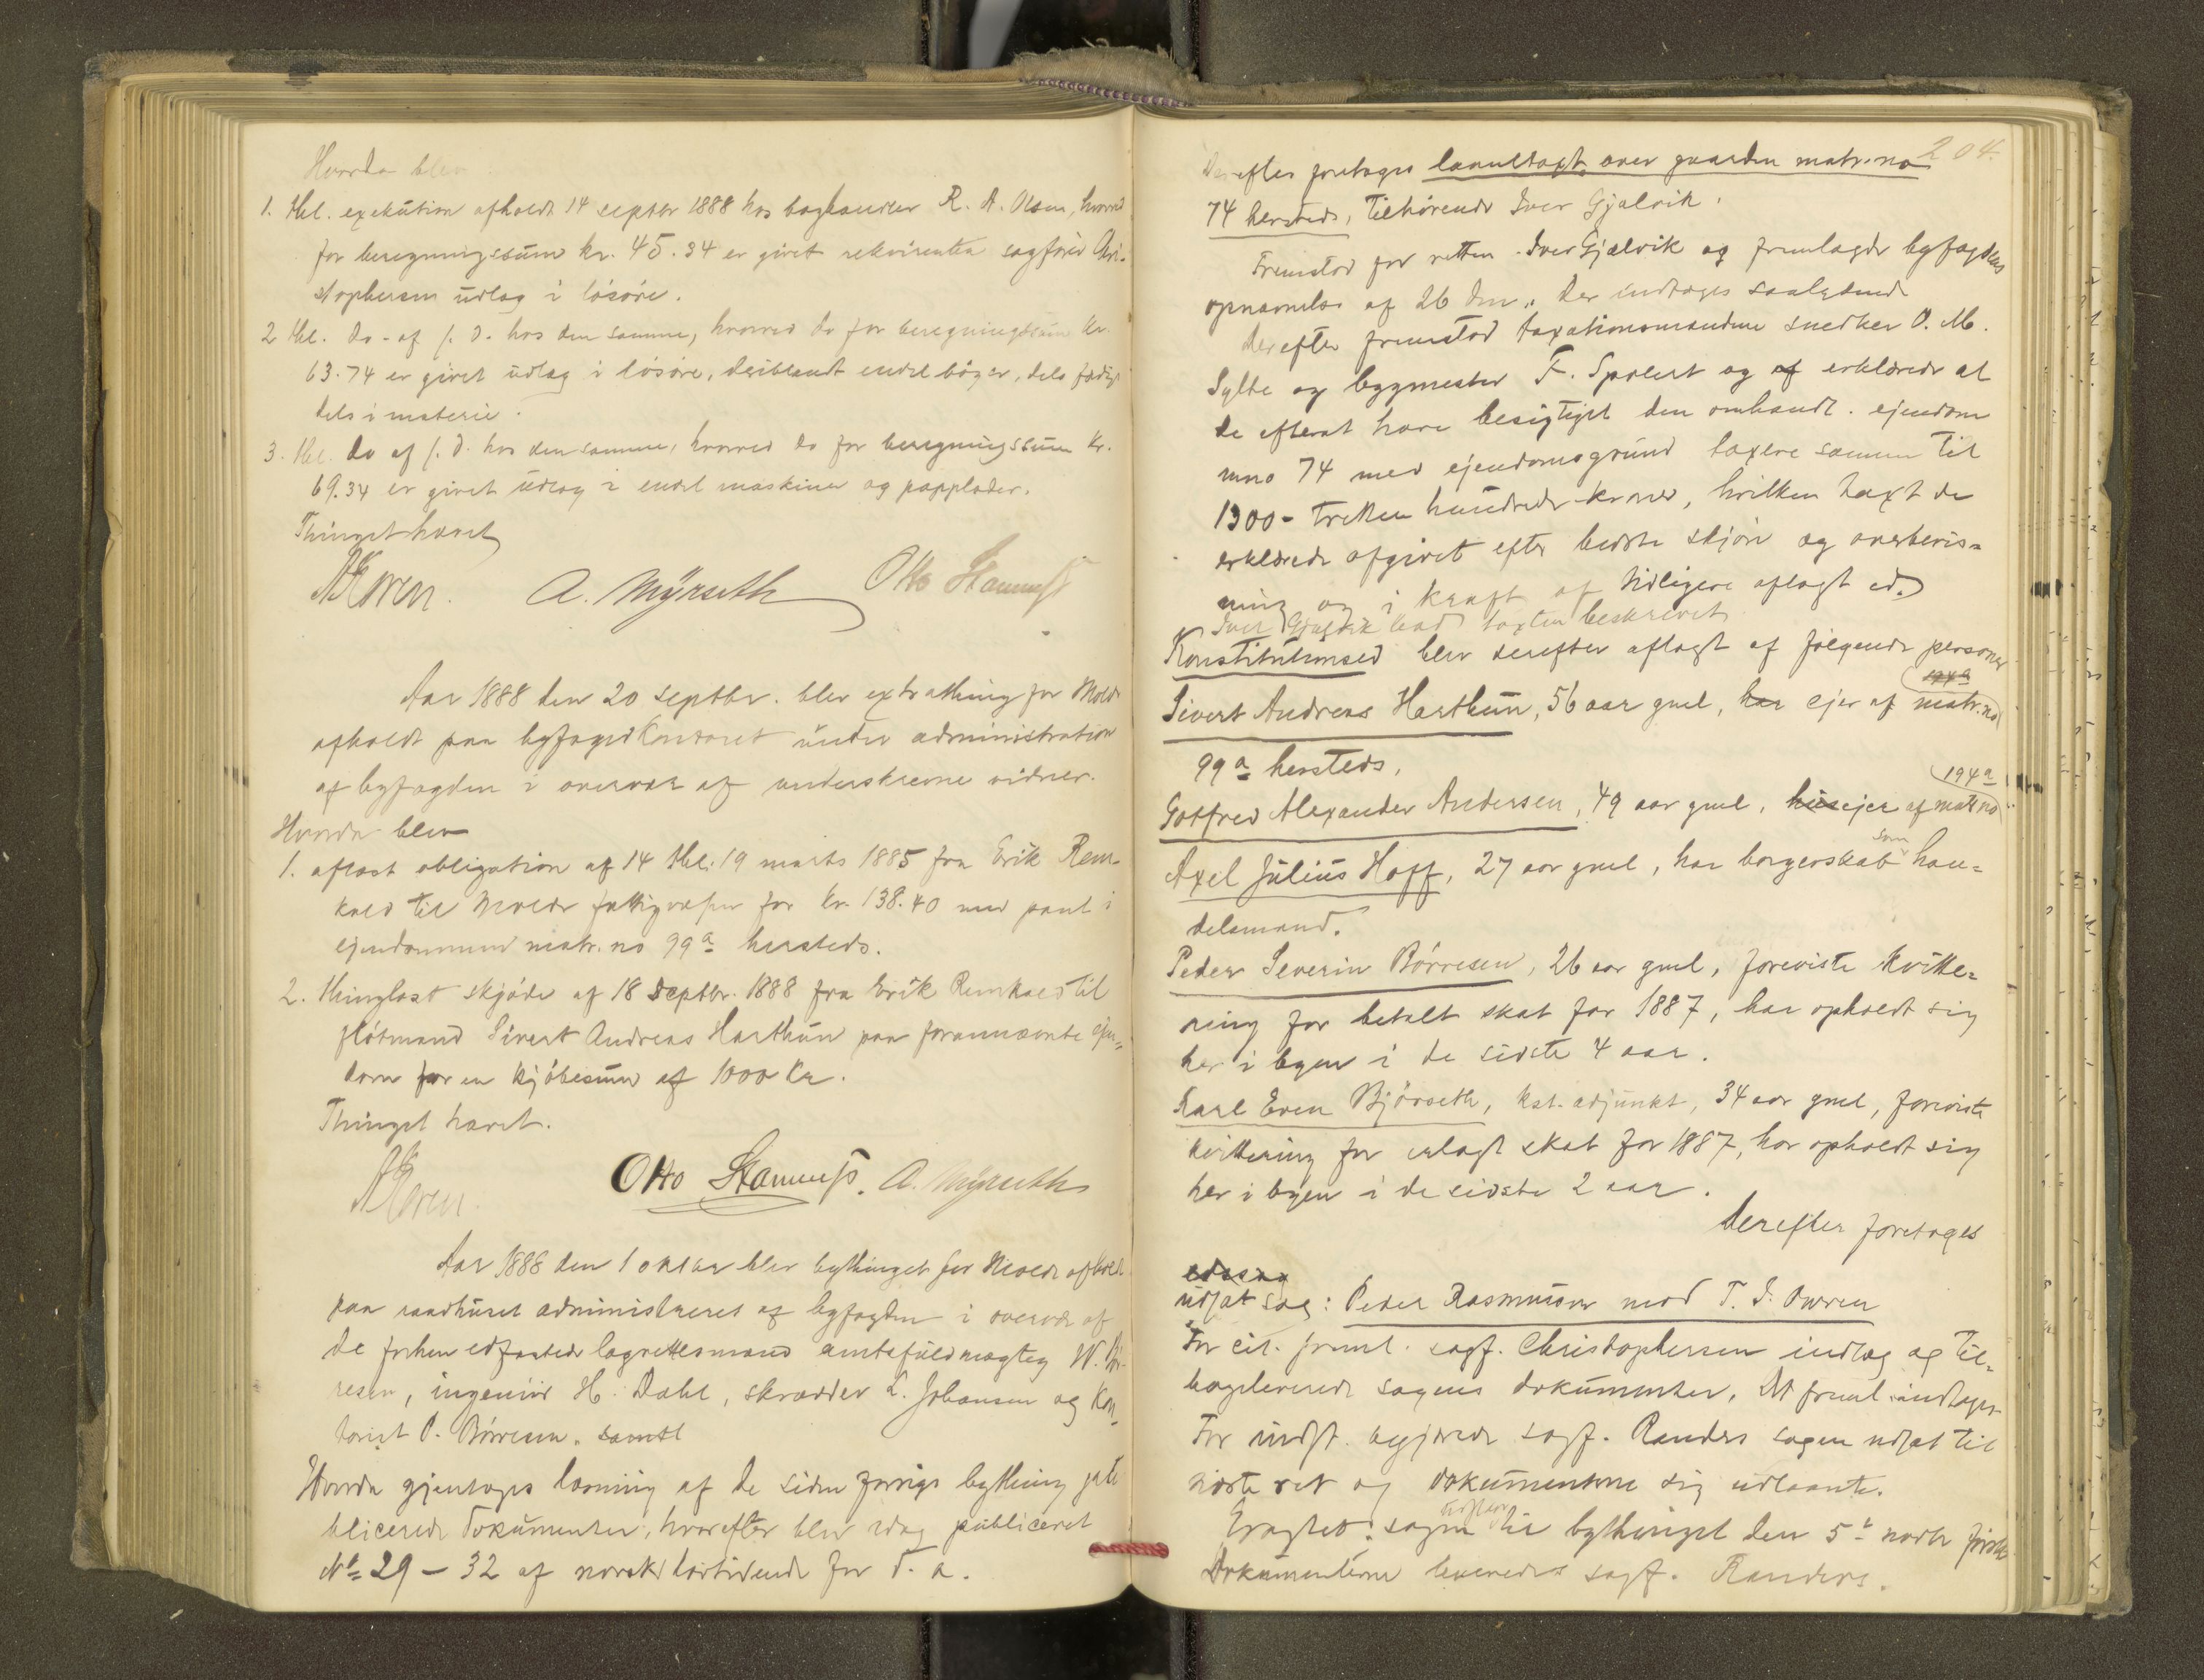 Hvorda blev
1. thl. exekution afholdt 14 septbr 1888 hos boghandler R. A. Olsen, hvorved
for beregningssum kr. 45.34 er givet rekvirenten sagfører Chri-
stophersen udlæg i løsøre.
2 thl. do - af s. D. hos den samme, hvorved do for beregningssum kr.
63.74 er givet udlæg i løsøre, deriblandt endel bøger, dels færdige
dels i materie.
3. thl. do af s. D. hos den samme, hvorved do for beregningssum kr.
69.34 er givet udlæg i endel maskiner og papplader.
Thinget hævet
A. Myrseth Otto Stamnesß
Aar 1888 den 20 septbr. blev extrathing for Molde
afholdt paa byfogedkontoret under administration
af byfogden i overvær af underskrevne vidner.
Hvorda blev
1. aflæst obligation af 14 thl. 19 marts 1885 fra Erik Rem-
kald til Molde fattigvæsen for kr. 138.40 med pant i
ejendommen matr. no 99 a hersteds.
2. thinglæst skjøde af 18 septbr. 1888 fra Erik Remkald til
fløtmand Sivert Andreas Harthun paa forannævnte ejen-
dom for en kjøbesum af 1000 Kr.
Thinget hævet.
Otto Stamnesß. A. Myrseth
Aar 1888 den 1 oktbr blev bythinget for Molde afholdt
paa raadhuset administreret af byfogden i overvær af
de forhen edfæstede lagrettesmænd amtsfuldmægtig W. Bør-
resen, ingeniør H. Dahl, skrædder L. Johansen og Kon-
torist P. Børresen. samtl
Hvorda gjentoges læsning af de siden forrige bything pu-
blicerede dokumenter, hvorefter blev idag publiceret
No 29 – 32 af norsk lovtidende for d. a.
204.
Derefter foretoges laanetaxt over gaarden matr. no
74 hersteds, tilhørende Iver Gjelvik.
Fremstod for retten Iver Gjelvik og fremlagde byfogdens
opnævnelse af 26 dm., der indtages saalydende
Derefter fremstod taxationsmændene snedker O. M.
Sylte og bygmester F. Spolert og af erklærede at
de efterat have besigtiget den omhandl. ejendom
mno 74 med ejendomsgrund taxere samme til
1300 - tretten hundrede kroner, hvilken taxt de
erklærede afgivet efter bedste skjøn og overbevis-
ning og i kraft af tidligere aflagt ed.
Iver Gjelvik bad taxten beskrevet
Konstitutionsed blev derefter aflagt af følgende personer
Sivert Andreas Harthun, 56 aar gml, har ejer af matr. no 194 a
99 a hersteds.
Gotfred Alexander Andersen, 49 aar gml, husejer af matr no 194 a
Axel Julius Hoff, 27 aar gml, har borgerskab som han-
delsmand.
Peder Severin Børresen, 26 aar gml, foreviste kvitte-
ring for betalt skat for 1887, har opholdt sig
her i byen i de sidste 4 aar.
Karl Even Bjørseth, kst. adjunkt, 34 aar gml, foreviste
kvittering for erlagt skat for 1887, har opholdt sig
her i byen i de sidste 2 aar.
Derefter foretoges
edssag
udsat sag: Peder Rasmussen mod T. I. Owren
For cit. freml. sagf. Christophersen indlæg og til-
bageleverede sagens dokumenter. Det freml. indtages
For indst. begjærede sagf. Randers sagen udsat til
næste ret og dokumenterne sig udlaante.
Eragtet: sagen udsættes til bythinget den 5te novbr førstk.
Dokumenterne leveredes sagf. Randers.